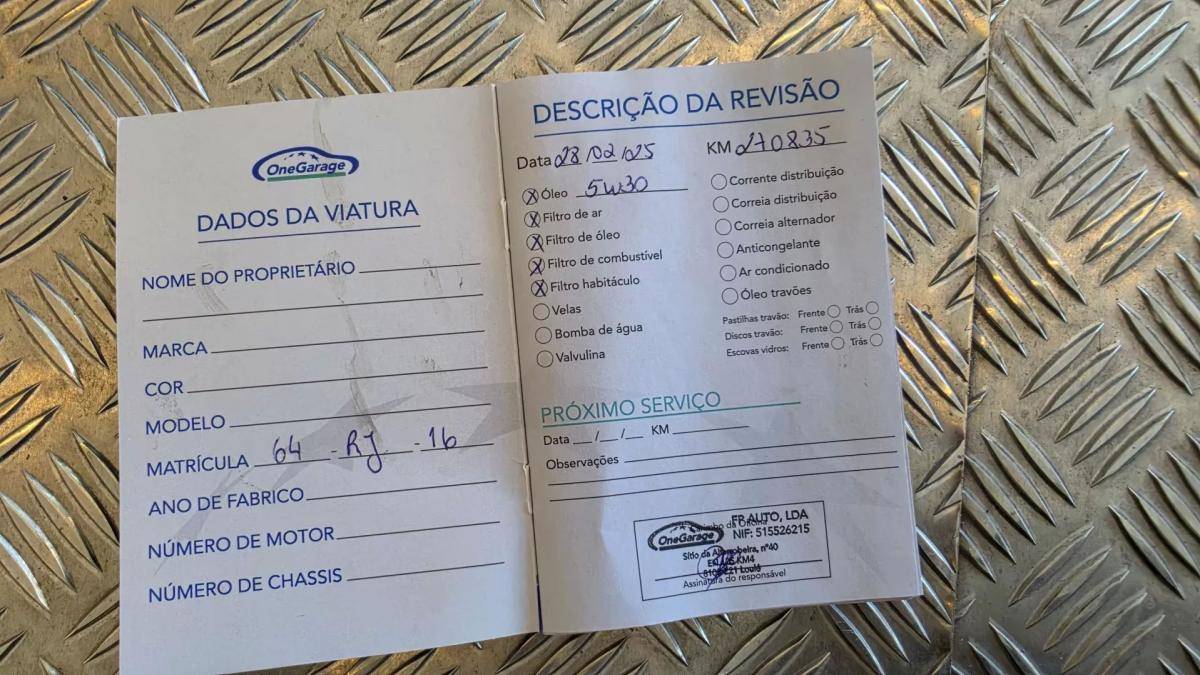 OneGarage
DADOS DA VIATURA
NOME DO PROPRIETÁRIO
MARCA
COR
MODELO
MATRÍCULA 64 - RJ - 16
ANO DE FABRICO
NÚMERO DE MOTOR
NÚMERO DE CHASSIS
DESCRIÇÃO DA REVISÃO
Data 28/02/025 KM 270835
Óleo 5w30
Filtro de ar
Filtro de óleo
Filtro de combustível
Filtro habitáculo
Velas
Bomba de água
Valvulina
Corrente distribuição
Correia distribuição
Correia alternador
Anticongelante
Ar condicionado
Óleo travões
Pastilhas travão: Frente Trás
Discos travão: Frente Trás
Escovas vidros: Frente Trás
PRÓXIMO SERVIÇO
Data / / KM
Observações
OneGarage
FP AUTO, LDA
NIF: 515526215
Sítio da nº40
KM4
Loulé
Assinatura do responsável